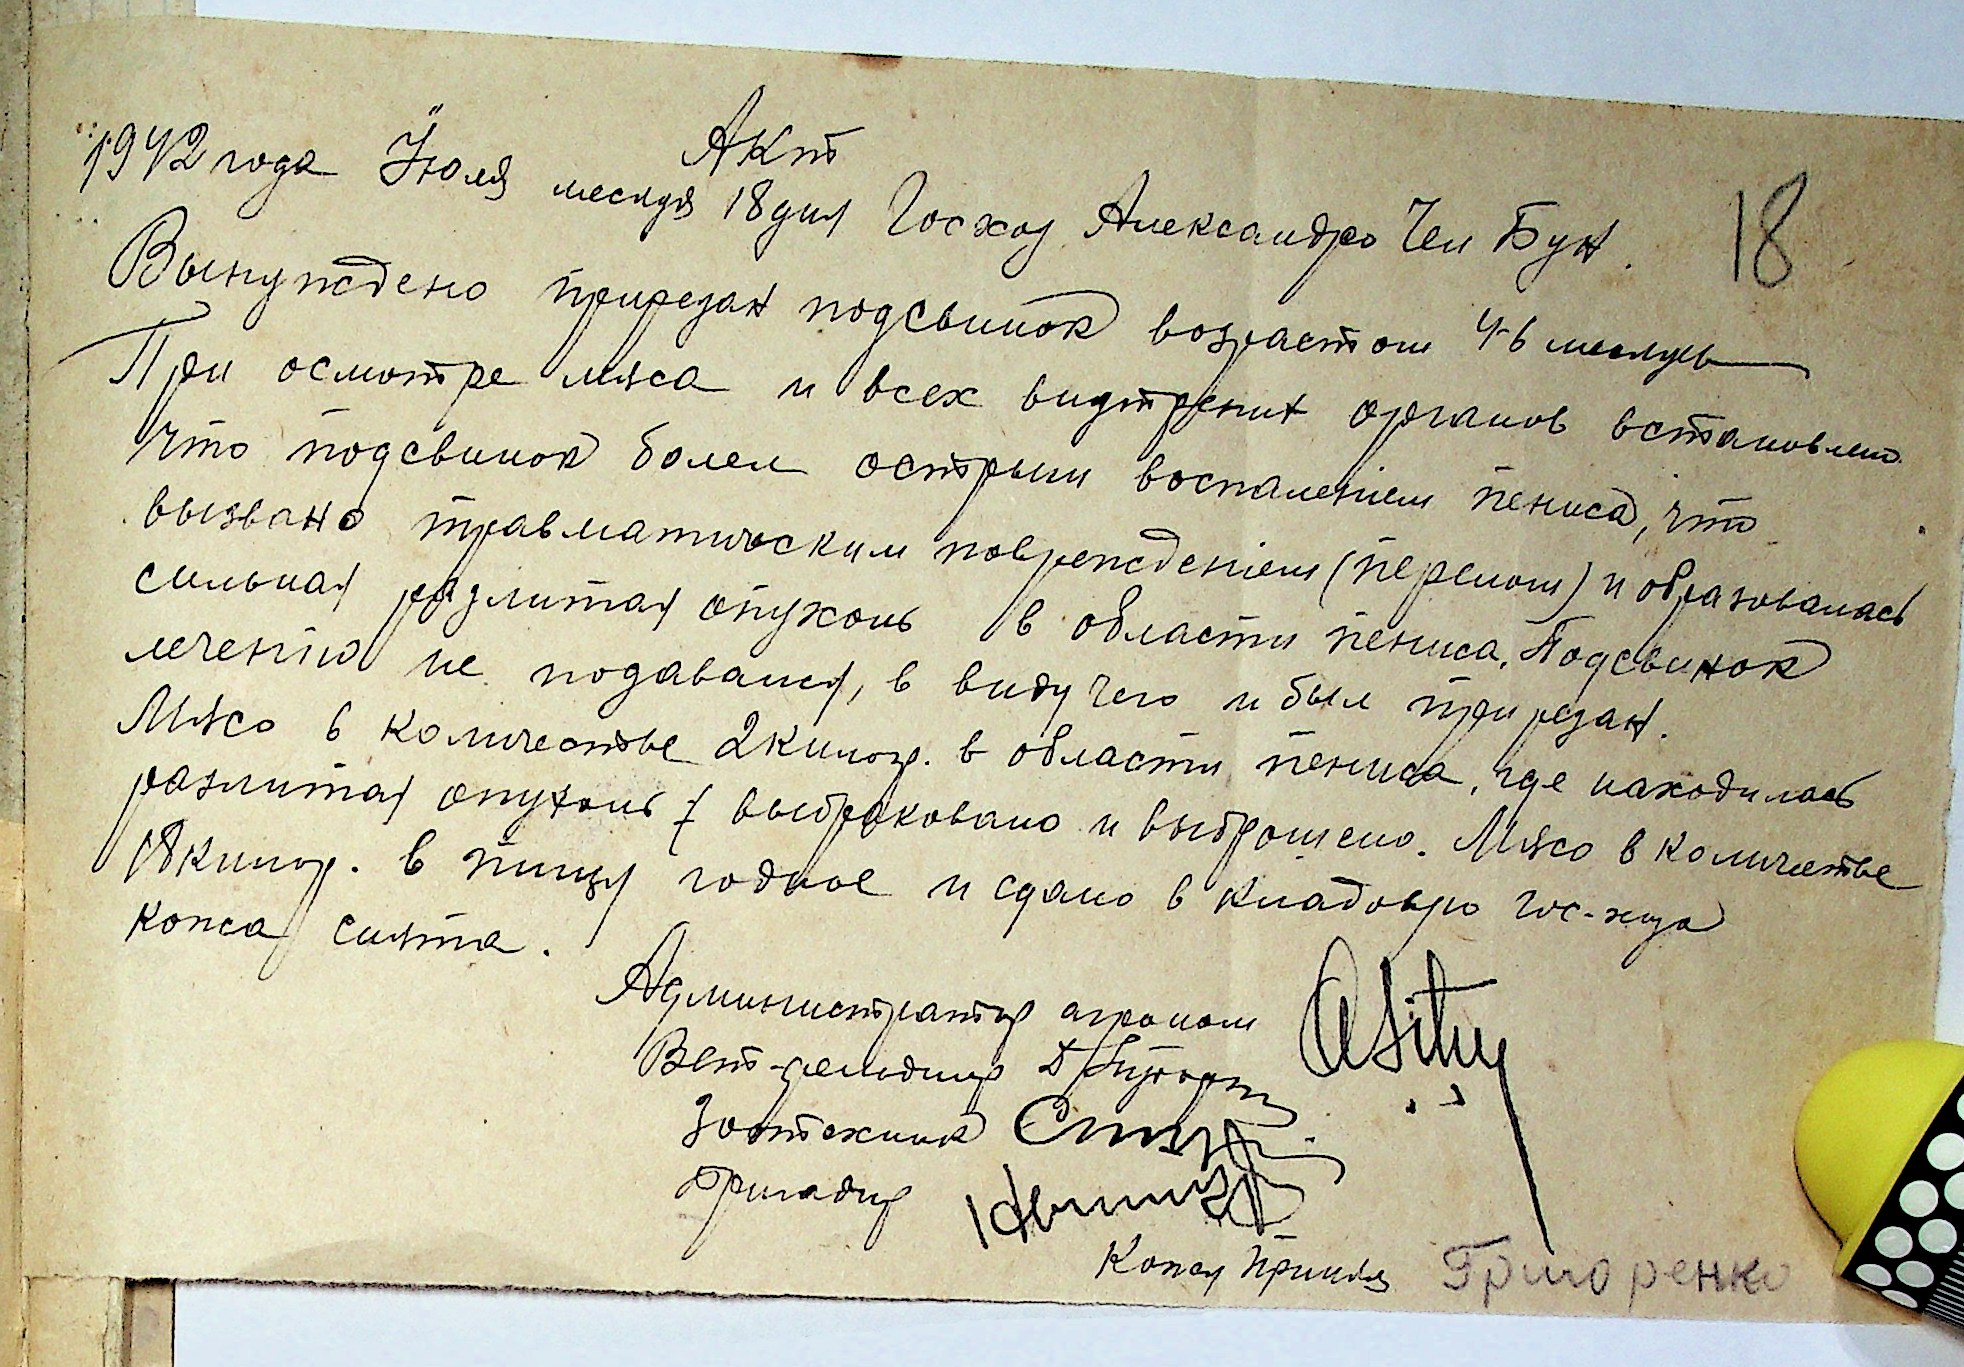 Акт
1942 года Июля месяца 18 дня Госхоз Александро Чен Бук.
18
Вынуждено прирезан подсвинок возрастом 4-6 месяцев
При осмотре мяса и всех внутрених органов встановлено
что подсвинок болел острым воспаленіем пениса, что
вызвано травматическим поврежденіем (перелом) и образовалась
сильная разлитая опухоль в области пениса. Подсвинок
леченію не подавался, в виду чего и был прирезан.
Мясо в количестве 2 килогр. в области пениса, где находилась
разлитая опухоль выбраковано и выброшено. Мясо в количестве
18 килогр. в пищу годное и сдано в кладовую гос-хоза
кожа снята.
Администратор агроном
Вет-фельдшер
Зоотехник
Бригадир
Кожу принял Григоренко